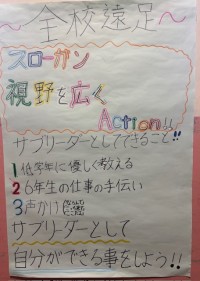 ～全校遠足～
スローガン
視野を広く
Action!!
サブリーダーとしてできること!!
1 低学年に優しく教える
2 6年生の仕事の手伝い
3 声かけ
サブリーダーとして
自分ができる事をしよう!!